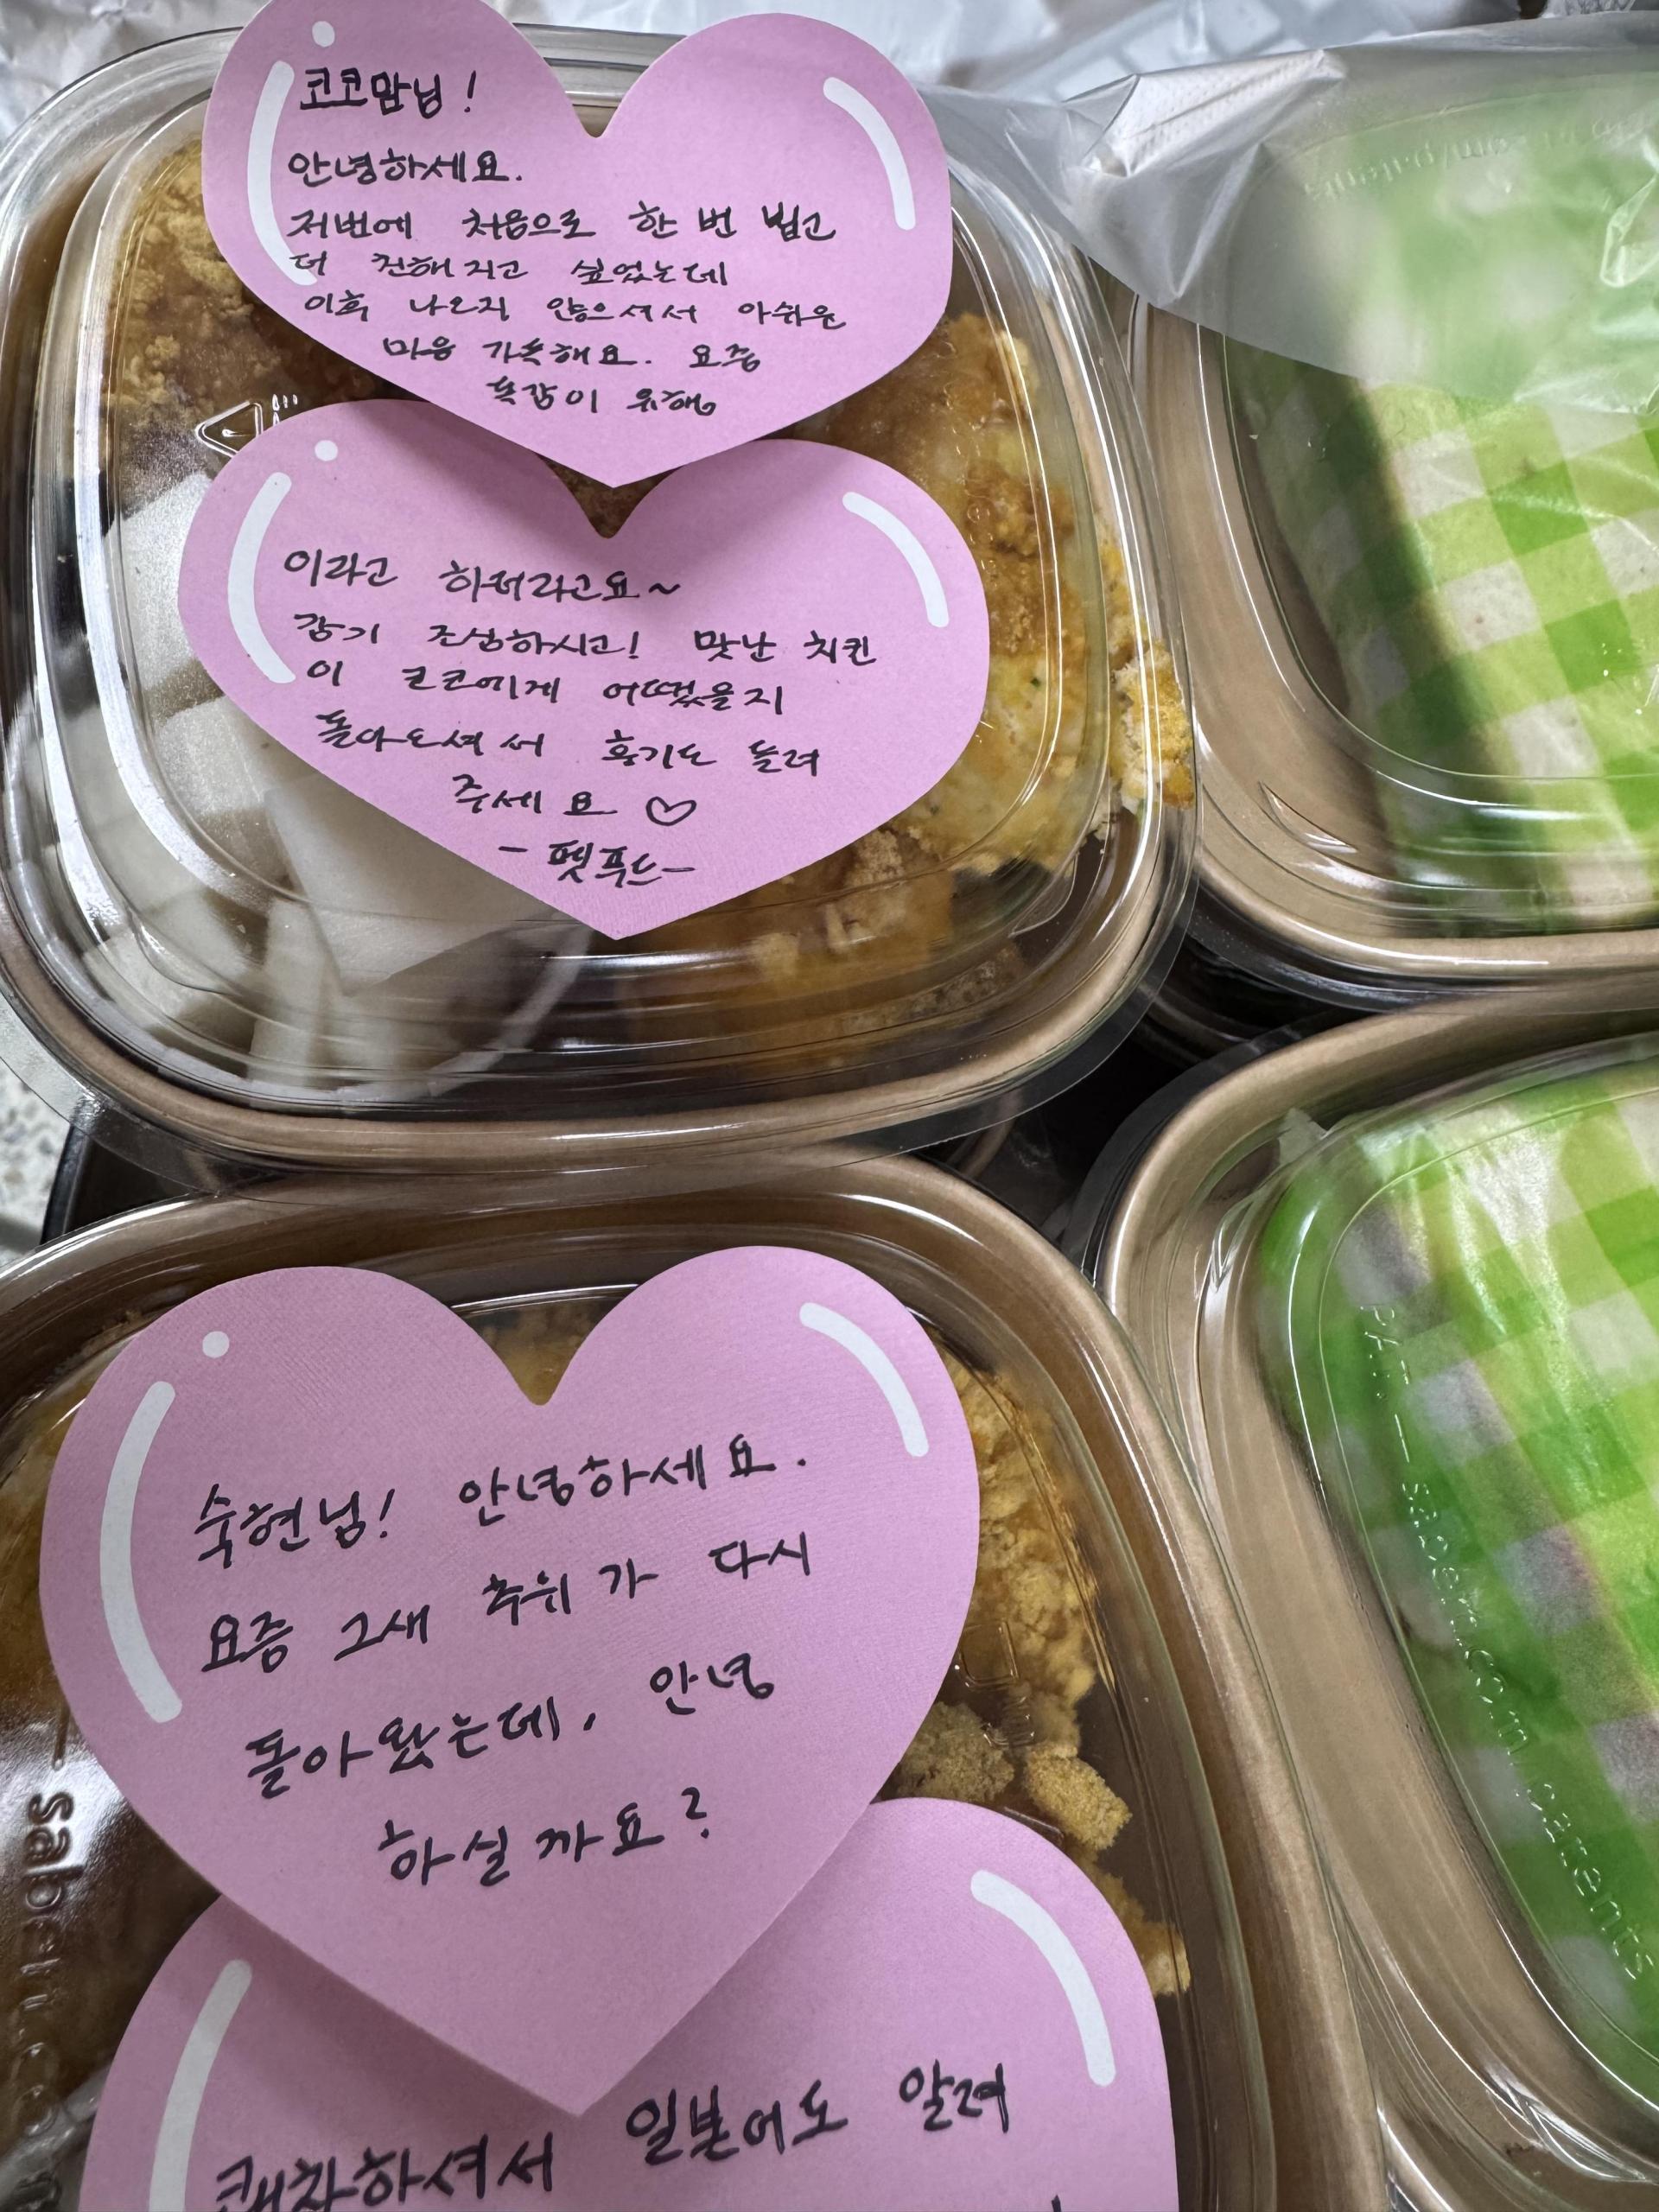 코코맘님!
안녕하세요.
저번에 처음으로 한 번 뵙고
더 친해지고 싶었는데
이후 나오지 않으셔서 아쉬운
마음 가득해요. 요즘
독감이 유행
이라고 하더라고요~
감기 조심하시고! 맛난 치킨
이 코코에게 어떠했을지
돌아오셔서 후기도 들려
주세요 ♡
- 펫푸드-
숙현님! 안녕하세요.
요즘 그새 추위가 다시
돌아왔는데, 안녕
하실까요?
쾌차하셔서 일본어도 알려
sabert.com
sabert.com/patents